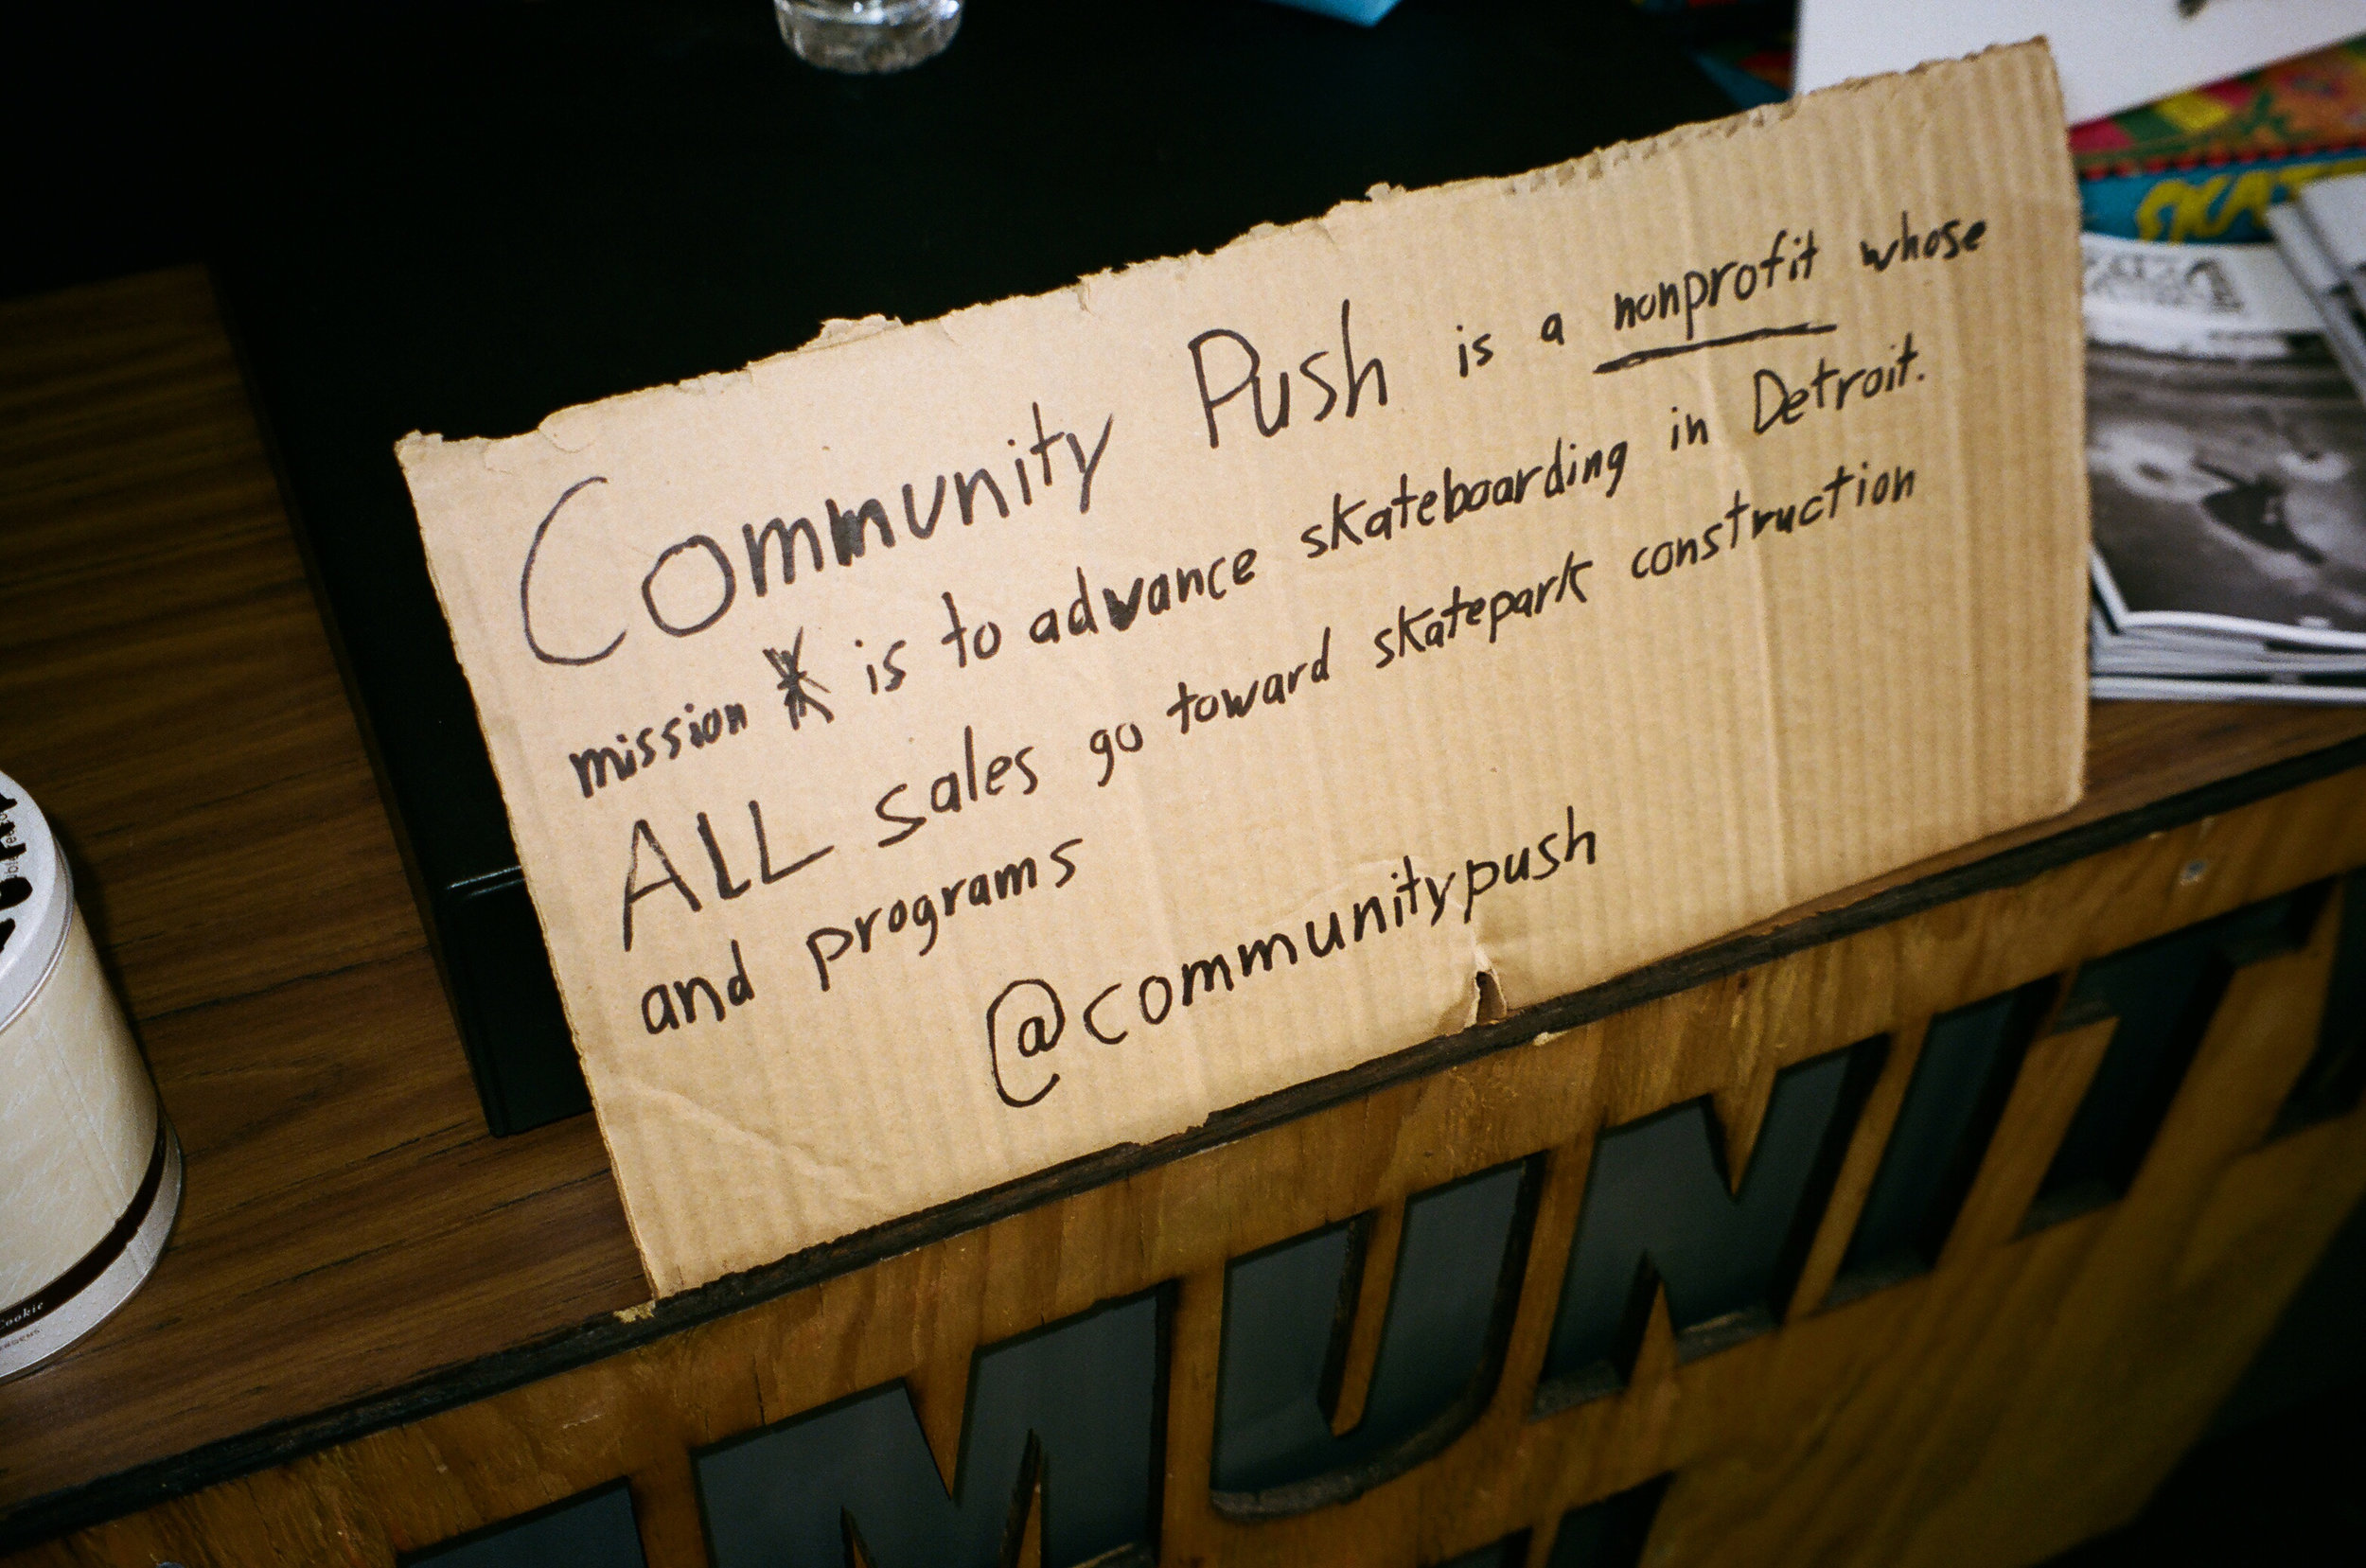 Community Push is a nonprofit whose
mission is to advance skateboarding in Detroit.
ALL sales go toward skatepark construction
and programs
@communitypush
SKAT
Cookie
MUNIT